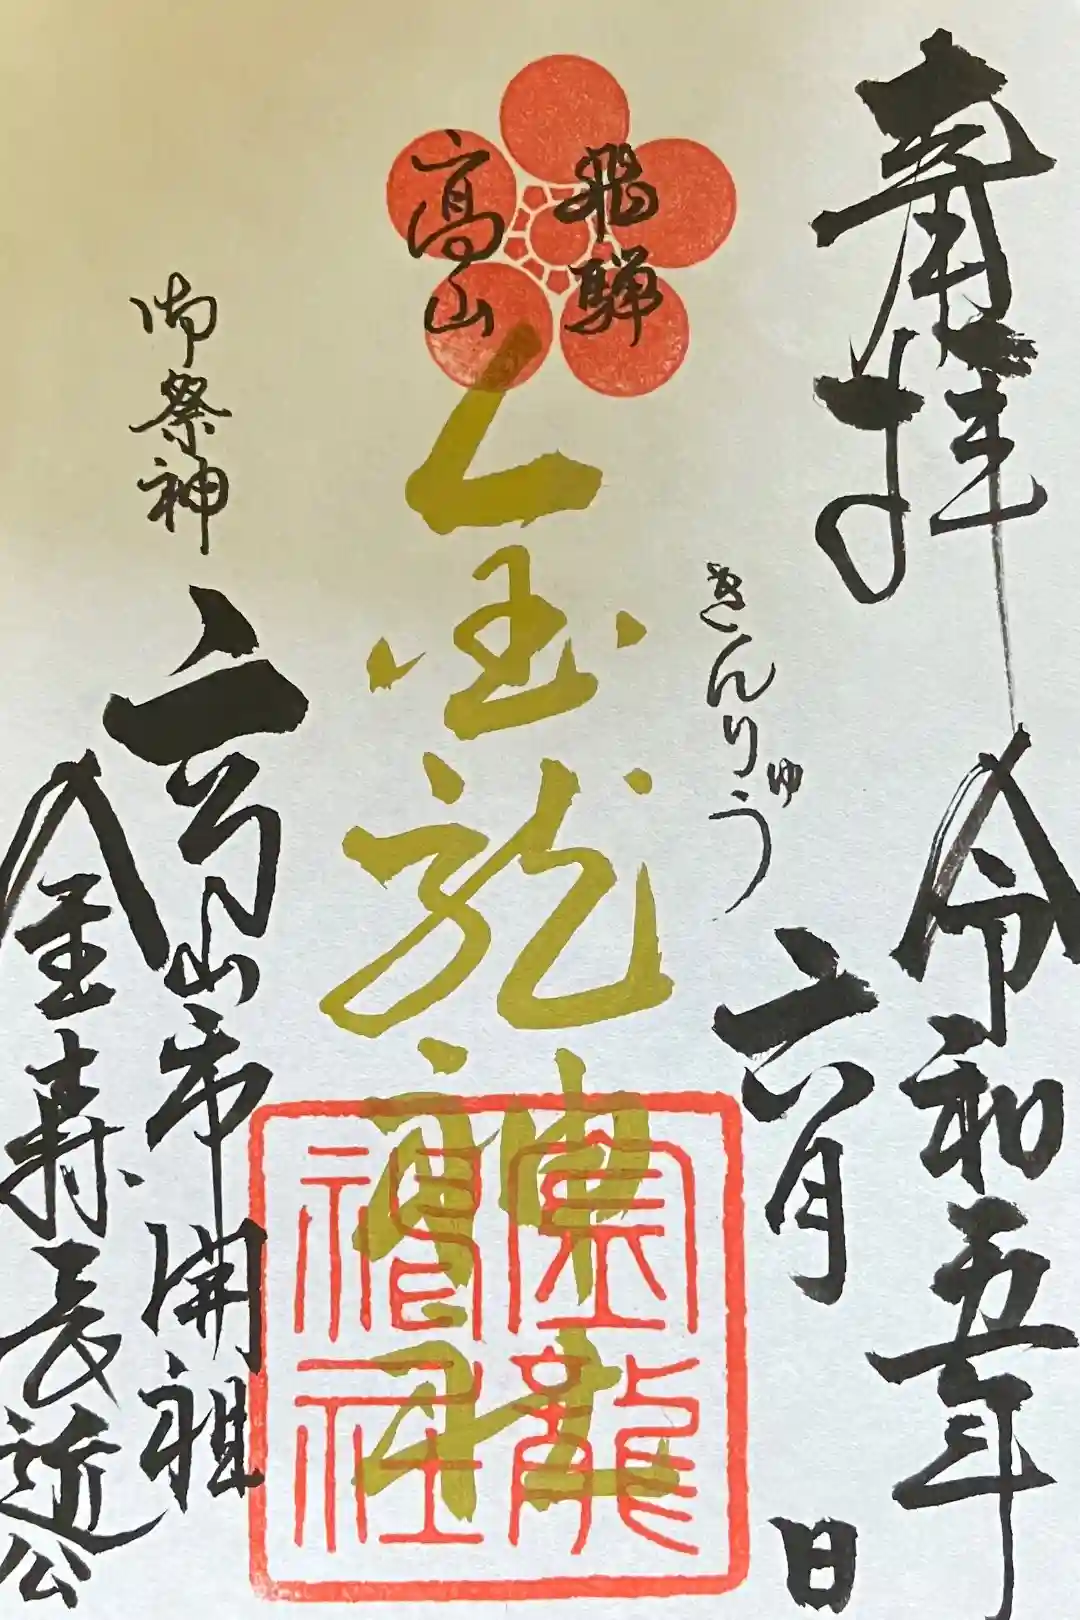 奉拝
令和五年
六月
日
飛騨
高山
きんりゅう
金龍神社
金龍
神社
御祭神
高山市開祖
金森長近公